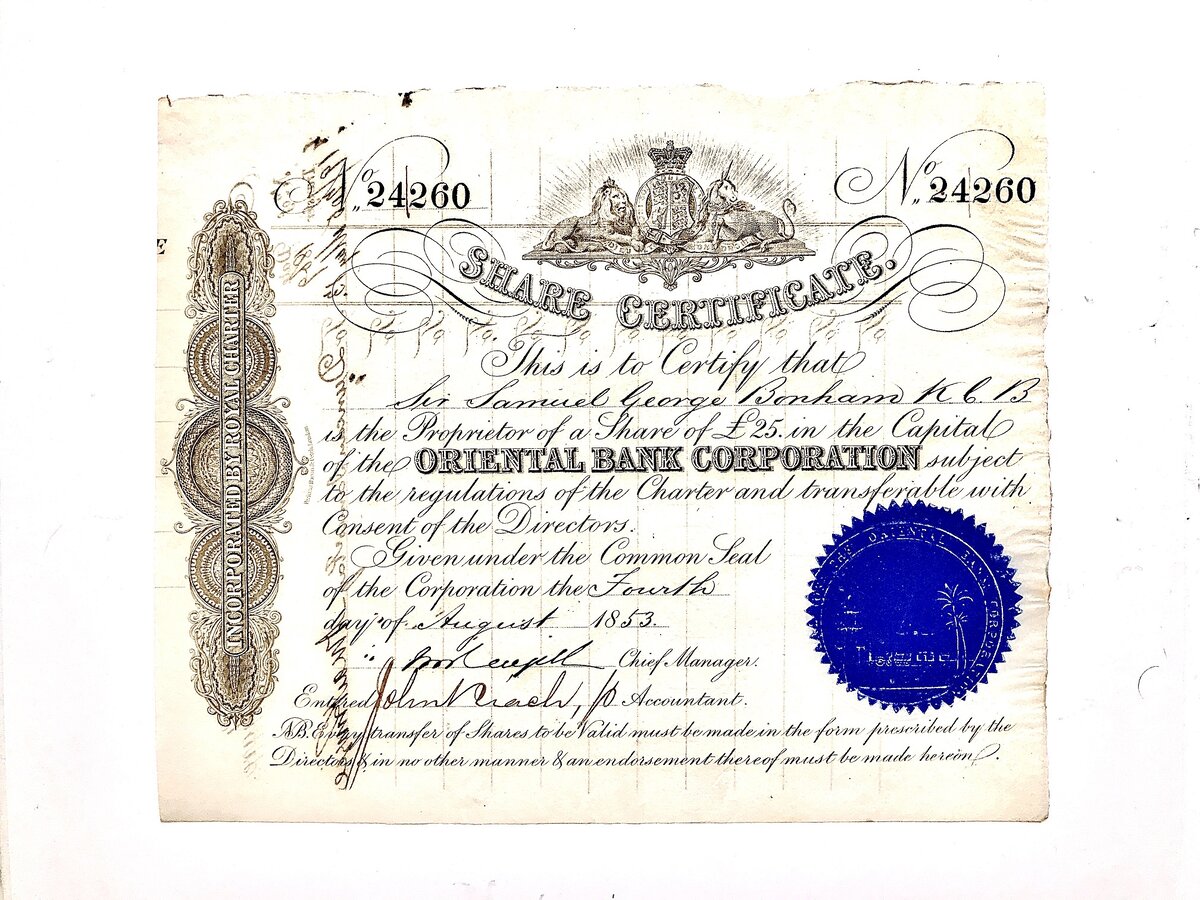 No. 24260
No. 24260
SHARE CERTIFICATE.
INCORPORATED BY ROYAL CHARTER
This is to Certify that
Sir Samuel George Bonham K C B
is the Proprietor of a Share of £25. in the Capital
of the ORIENTAL BANK CORPORATION subject
to the regulations of the Charter and transferable with
Consent of the Directors.
Given under the Common Seal
of the Corporation the Fourth
day of August 1853.
Chief Manager.
Entered John Accountant.
NB. Every transfer of Shares to be Valid must be made in the form prescribed by the
Directors & in no other manner & an endorsement thereof must be made hereon.
THE ORIENTAL BANK CORPORATION